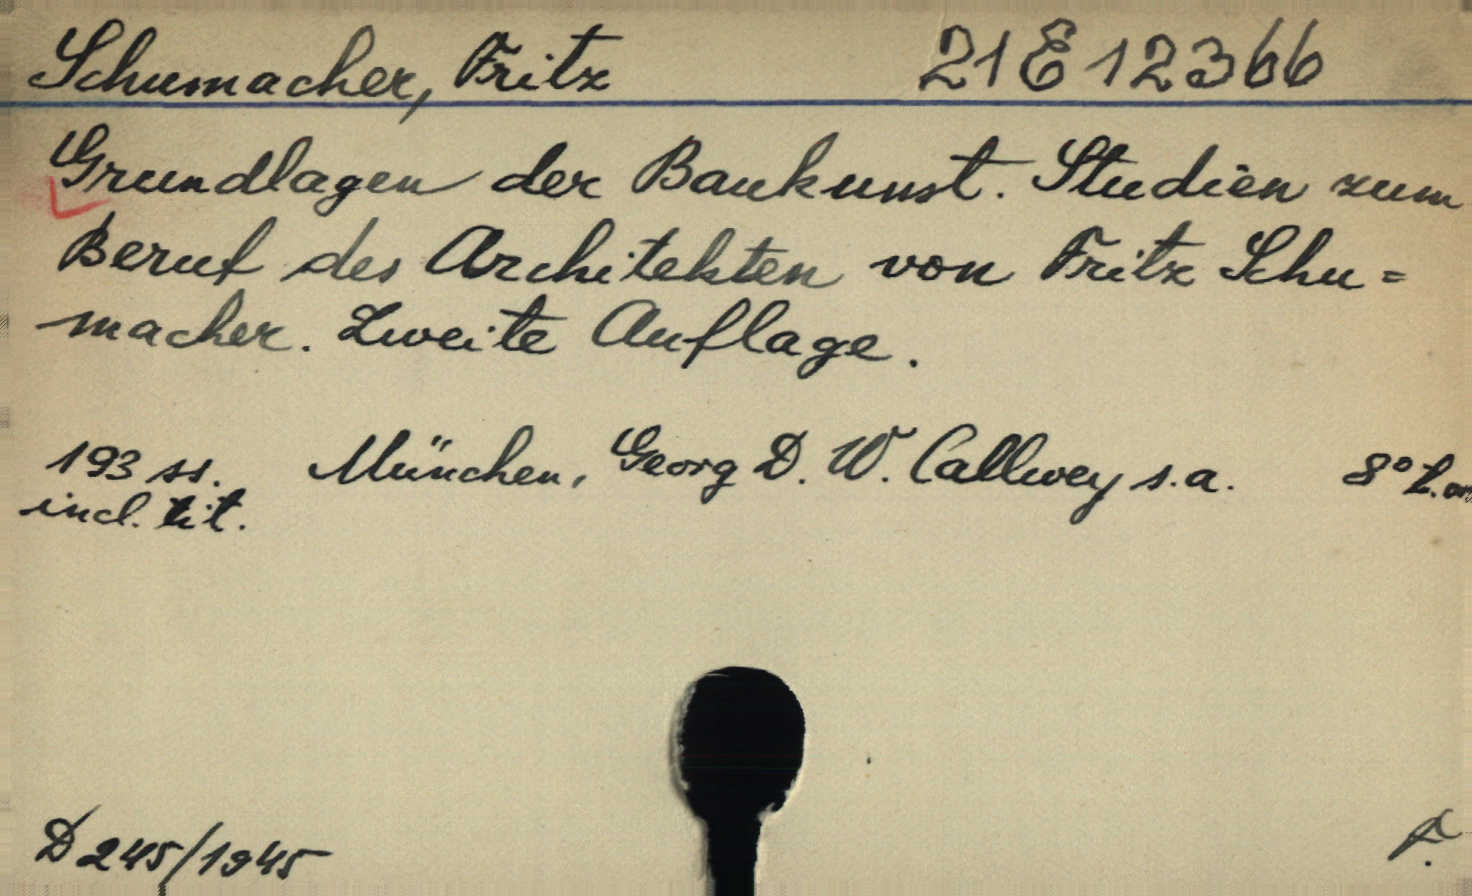 Schumacher, Fritz 21 E 12366
Grundlagen der Baukunst. Studien zum
Beruf des Architekten von Fritz Schu=
macher. Zweite Auflage.
193 ss. München, Georg D. W. Callwey s.a. 8°
incl. tit.
D 245/1945